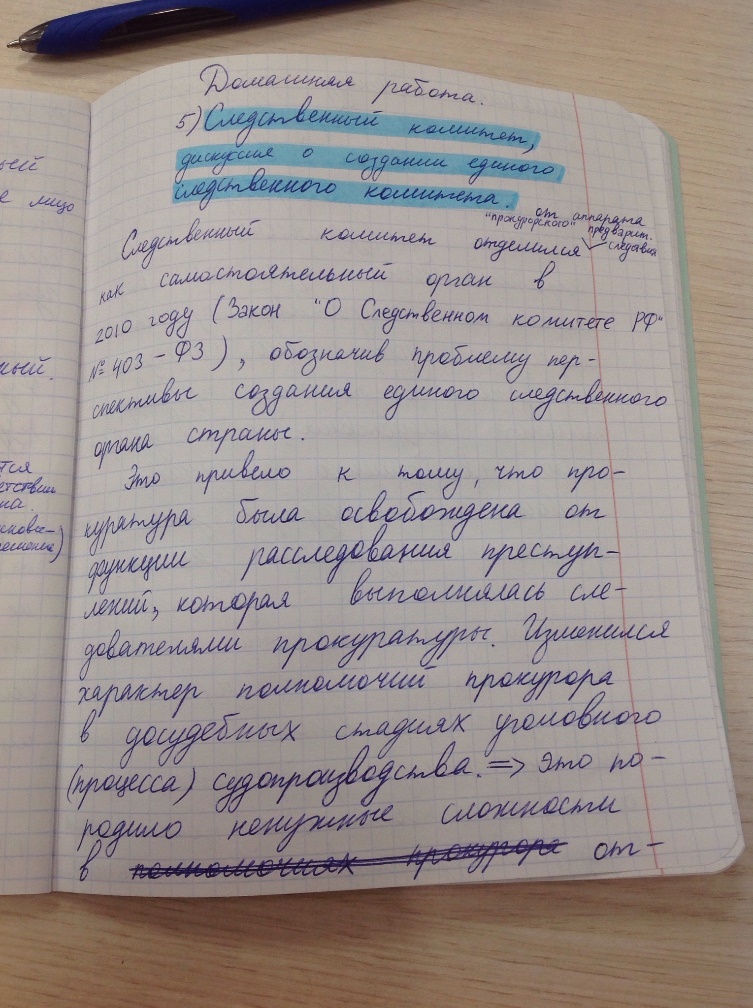 Домашняя работа.
5) Следственный комитет,
дискуссия о создании единого
следственного комитета.
от аппарата
"прокурорского" предварит.
следствия
Следственный комитет отделился
как самостоятельный орган в
2010 году (Закон "О Следственном комитете РФ"
№ 403 – ФЗ), обозначив проблему пер-
спективы создания единого следственного
органа страны.
Это привело к тому, что про-
куратура была освобождена от
функции расследования преступ-
лений, которая выполнялась сле-
дователями прокуратуры. Изменился
характер полномочий прокурора
в досудебных стадиях уголовного
(процесса) судопроизводства. => Это по-
родило ненужные сложности
в полномочиях прокурора от-
ьей
е лицо
ный.
тся
етствии
на.